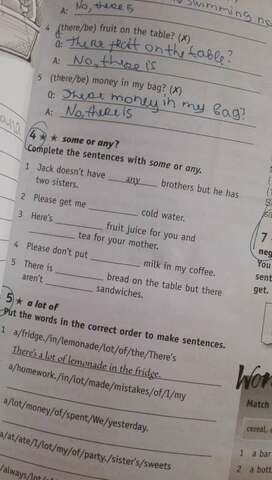 A: No, there is
swimming
4 (there/be) fruit on the table? (✗)
Q: There fruit on the table?
A: No, there is
5 (there/be) money in my bag? (✗)
Q: There money in my bag?
A: No, there is
4 ★ ★ some or any?
Complete the sentences with some or any.
1 Jack doesn't have any brothers but he has
two sisters.
2 Please get me ________ cold water.
3 Here's ________ fruit juice for you and
________ tea for your mother.
4 Please don't put ________ milk in my coffee.
5 There is ________ bread on the table but there
aren't ________ sandwiches.
5 ★ a lot of
Put the words in the correct order to make sentences.
1 a/fridge./in/lemonade/lot/of/the/There's
There's a lot of lemonade in the fridge.
a/homework./in/lot/made/mistakes/of/I/my
a/lot/money/of/spent/We/yesterday.
a/at/ate/I/lot/my/of/party./sister's/sweets
/always/lot
7
neg
You
sent
get.
Wor
Match
cereal,
1 a bar
2 a bott